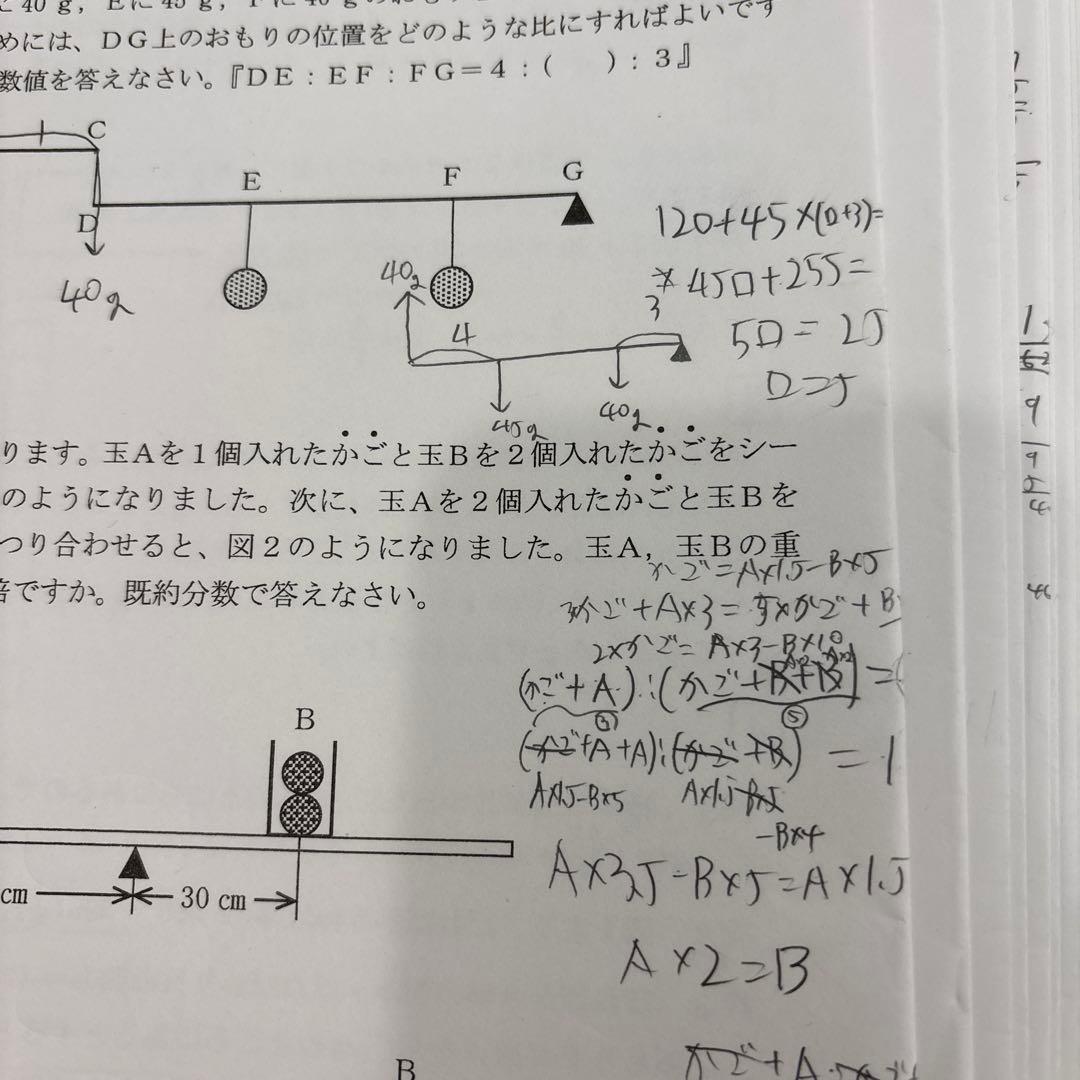 めには、DG上のおもりの位置をどのような比にすればよいです
数値を答えなさい。『DE：EF：FG＝4：（　　）：3』
C
E
F
G
D
40g
40g
4
3
45g
40g
120+45×(□+3)=
45□+255=
5□=25
□=5
ります。玉Aを1個入れたかごと玉Bを2個入れたかごをシー
のようになりました。次に、玉Aを2個入れたかごと玉Bを
つり合わせると、図2のようになりました。玉A，玉Bの重
倍ですか。既約分数で答えなさい。
かご=A×1.5-B×5
3かご+A×3=5×かご+B
2×かご=A×3-B×10
(かご+A):(かご+B+B)=
③
⑤
(かご+A+A):(かご+B)=1
A×1.5-B×5
-B×4
A×3.5-B×5=A×1.5
A×2=B
B
cm
30 cm
B
かご+A